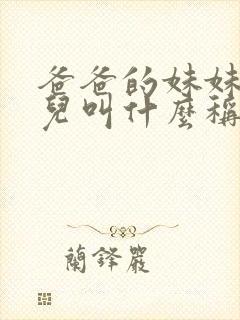 爸爸的妹妹
兒叫什麼稱
蘭鋒嚴